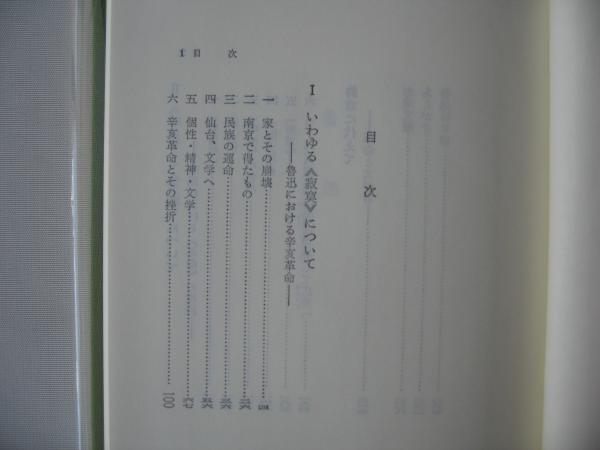 目次
I いわゆる《寂寞》について
——魯迅における辛亥革命——
一 家とその崩壊
二 南京で得たもの
三 民族の運命
四 仙台、文学へ
五 個性・精神・文学 六七
六 辛亥革命とその挫折 一〇〇
1 目次